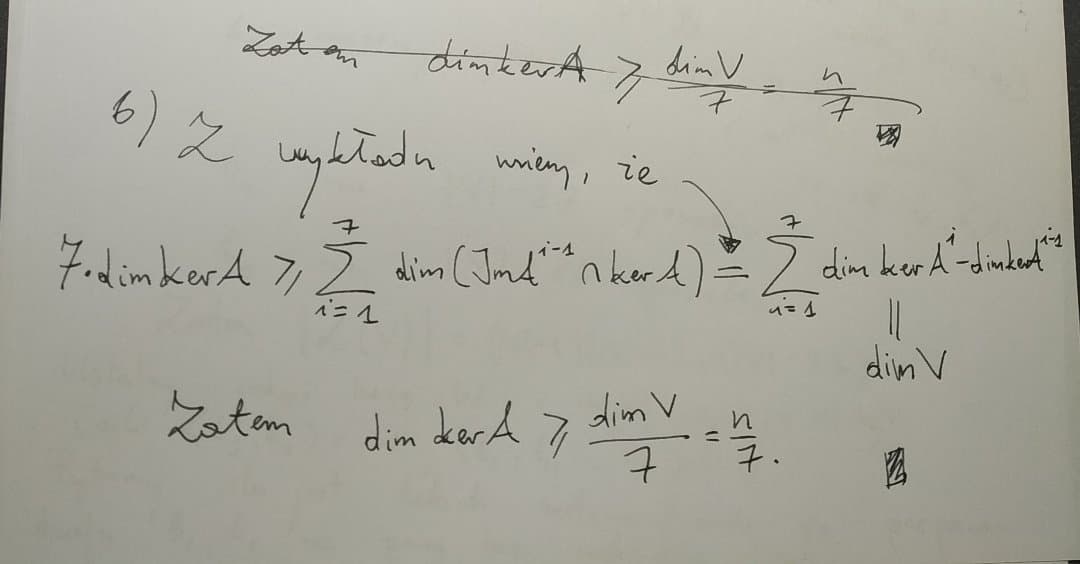 Zatem dim ker A ⩾ dim V / 7 = n / 7
6) Z wykładu wiem, że
7·dim ker A ⩾ ∑_{i=1}^{7} dim (Im A^{i-1} ∩ ker A) = ∑_{i=1}^{7} dim ker A^{i} - dim ker A^{i-1}
||
dim V
Zatem dim ker A ⩾ dim V / 7 = n / 7.